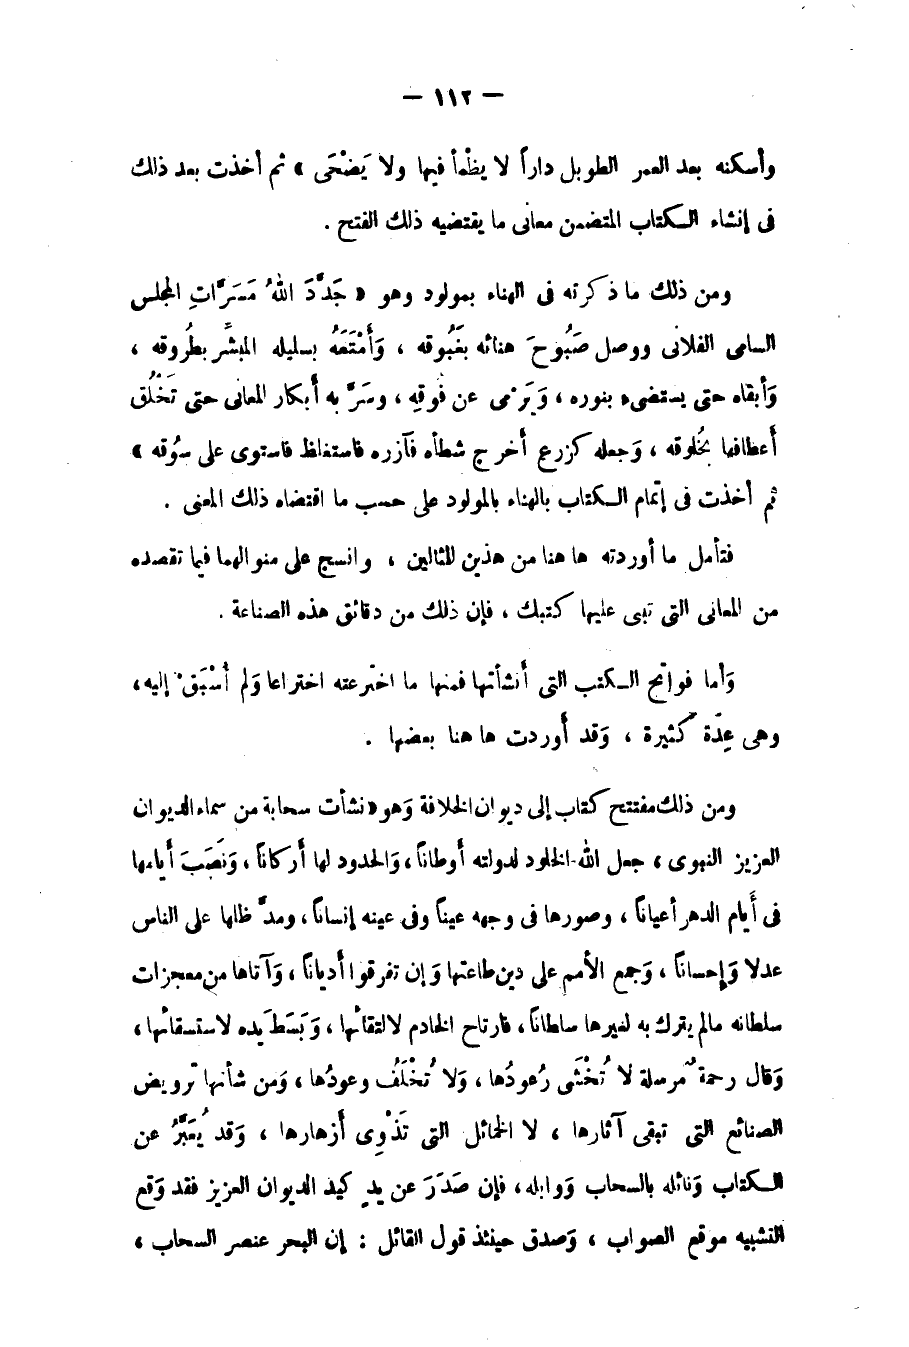 — ١١٢ —
وأسكنه بعد العمر الطويل داراً لا يظمأ فيها ولا يَضْحَى » ثم أخذت بعد ذلك
فى إنشاء الكتاب المتضمن معانى ما يقتضيه ذلك الفتح .
ومن ذلك ما ذكرته فى الهناء بمولود وهو « جَدَّدَ اللهُ مَسَرَّاتِ المجلس
السامى الفلانى ووصل صَبُوحَ هنائه بغَبُوقه ، وَأَمْتَعَهُ بسليله المبشَّر بطُروقه ،
وَأبقاه حتى يستضىء بنوره ، وَيَرْمى عن فُوقِه ، وسَرَّ به أبكار المعانى حتى تَخْلُق
أعطافها بخُلوقه ، وَجعله كزرع أخرج شطأه فآزره فاستغلظ فاستوى على سُوقه »
ثم أخذت فى إتمام الكتاب بالهناء بالمولود على حسب ما اقتضاه ذلك المعنى .
فتأمل ما أوردته ها هنا من هذين المثالين ، وانسج على منوالهما فيما تقصده
من المعانى التى تبنى عليها كتبك ، فإن ذلك من دقائق هذه الصناعة .
وَأما فواتح الكتب التى أنشأتها فمنها ما اخترعته اختراعا وَلم أُسْبَقْ إليه ،
وهى عِدّة كثيرة ، وَقد أوردت ها هنا بعضها .
ومن ذلك مفتتح كتاب إلى ديوان الخلافة وَهو « نشأت سحابة من سماء الديوان
العزيز النبوى ، جعل الله الخلود لدولته أوطاناً ، وَالحدود لها أركاناً ، وَنَصَبَ أيامها
فى أيام الدهر أعياناً ، وصورها فى وجهه عيناً وفى عينه إنساناً ، ومدَّ ظلها على الناس
عدلا وَإحساناً ، وَجمع الأمم على دين طاعتها وَإن تفرقوا أدياناً ، وَآتاها من معجزات
سلطانه مالم ينزل به لغيرها سلطاناً ، فارتاح الخادم لالتقائها ، وَبَسَطَ يده لاستسقائها ،
وَقال رحمة مُرسلة لا تُخْشَى رُعودُها ، وَلا تُخْلَفُ وعودُها ، وَمن شأنها ترويض
الصنائع التى تبقى آثارها ، لا الخمائل التى تَذْوِى أزهارها ، وَقد يُعَبَّرُ عن
الكتاب وَنائله بالسحاب وَوابله ، فإن صَدَرَ عن يدٍ كيد الديوان العزيز فقد وَقع
التشبيه موقع الصواب ، وَصدق حينئذ قول القائل : إن البحر عنصر السحاب ،